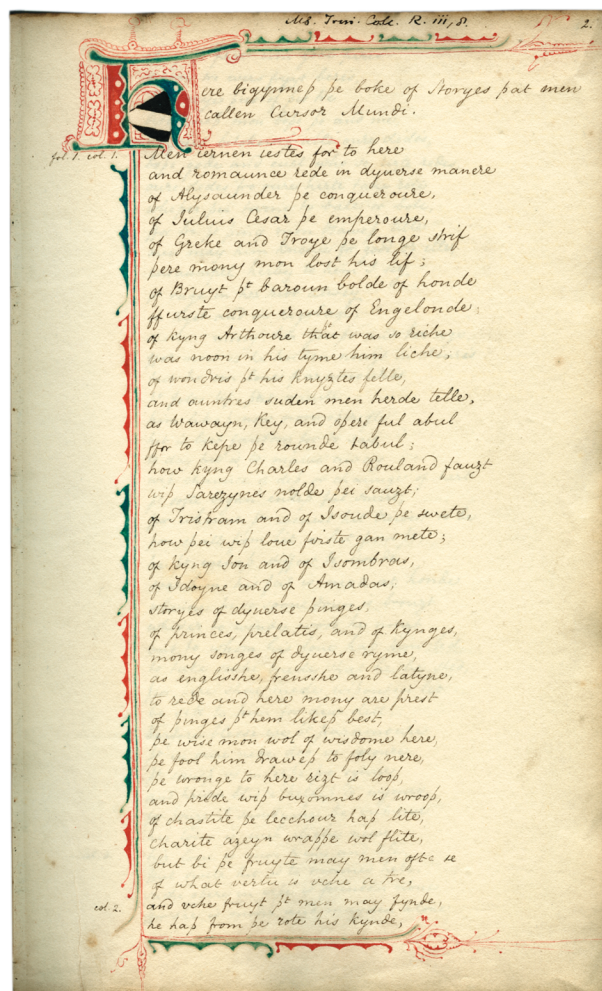 Ms. Trin. Coll. R. iii, 8.
2.
Here bigynneþ þe boke of Storyes þat men
callen Cursor Mundi.
fol. 1. col. 1.
Men iernen iestes for to here
and romaunce rede in dyuerse manere
of Alysaunder þe conqueroure,
of Iulius Cesar þe emperoure,
of Greke and Troye þe longe strif
þere mony mon lost his lif;
of Bruyt þt baroun bolde of honde
ffurste conqueroure of Engelonde;
of kyng Arthoure that was so riche
was noon in his tyme him liche;
of wondris þt his knyȝtes felle,
and auntres suden men herde telle,
as Wawayn, Key, and oþere ful abul
ffor to kepe þe rounde tabul;
how kyng Charles and Rouland fauȝt
wiþ Sarezynes nolde þei sauȝt;
of Tristram and of Isoude þe swete,
how þei wiþ loue firste gan mete;
of kyng Ion and of Isombras,
of Idoyne and of Amadas;
storyes of dyuerse þinges,
of princes, prelatis, and of kynges,
mony songes of dyuerse ryme,
as englisshe, frensshe and latyne,
to rede and here mony are prest
of þinges þt hem likeþ best,
þe wise mon wol of wisdome here,
þe fool him draweþ to foly nere,
þe wronge to here riȝt is looþ,
and pride wiþ buxomnes is wrooþ,
of chastite þe lecchour haþ lite,
charite aȝeyn wraþþe wol flite,
but bi þe fruyte may men ofte se
of what vertu is vche a tre,
col. 2.
and vche fruyt þt men may fynde,
he haþ from þe rote his kynde,